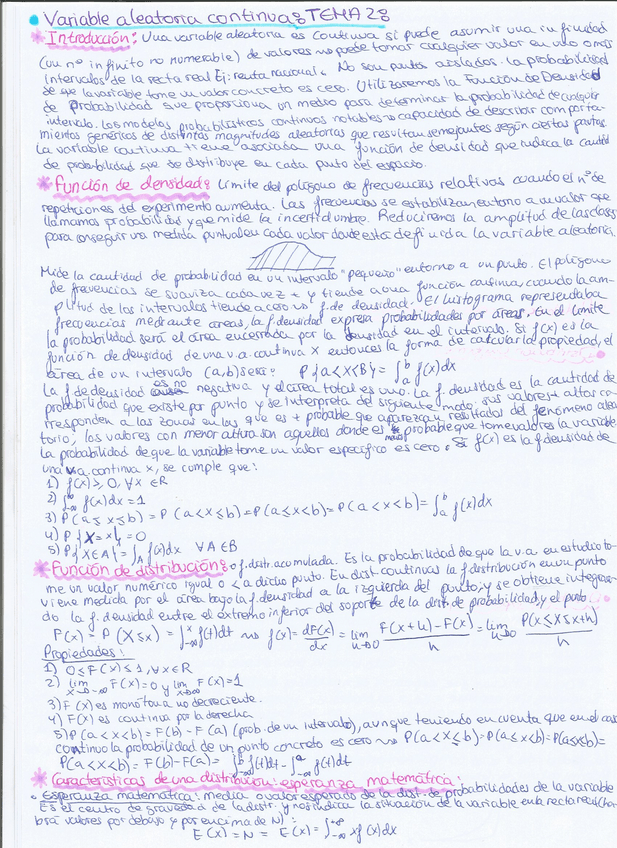 Variable aleatoria continua: TEMA 2:
Introducción: Una variable aleatoria es continua si puede asumir una infinidad
(un nº infinito no numerable) de valores puede tomar cualquier valor en uno o más
intervalos de la recta real Ej: renta nacional. No son puntos aislados. La probabilidad
de que la variable tome un valor concreto es cero. Utilizaremos la Función de Densidad
de Probabilidad que proporciona un medio para determinar la probabilidad de cualquier
intervalo. Los modelos probabilísticos continuos notables capacidad de describir comporta-
mientos genéricos de distintas magnitudes aleatorias que resultan semejantes según ciertas pautas.
La variable continua tiene asociada una función de densidad que indica la cantidad
de probabilidad que se distribuye en cada punto del espacio.
Función de densidad: Límite del polígono de frecuencias relativas cuando el nº de
repeticiones del experimento aumenta. Las frecuencias se estabilizan entorno a un valor que
llamamos probabilidad y que mide la incertidumbre. Reduciremos la amplitud de las clases
para conseguir una medida puntual en cada valor donde esta definida la variable aleatoria.
Mide la cantidad de probabilidad en un intervalo "pequeño" entorno a un punto. El polígono
de frecuencias se suaviza cada vez + y tiende a una función continua, cuando la am-
plitud de los intervalos tiende a cero f. de densidad. El histograma representaba
frecuencias mediante áreas, la f. densidad expresa probabilidades por áreas. En el límite
la probabilidad será el área encerrada por la densidad en el intervalo. Si f(x) es la
función de densidad de una v.a. continua X entonces la forma de calcular la propiedad, el
área de un intervalo (a,b) será: P{a<X<B} = ∫ₐᵇ f(x)dx
La f. de densidad es no negativa y el área total es uno. La f. densidad es la cantidad de
probabilidad que existe por punto y se interpreta del siguiente modo, sus valores + altos co-
rresponden a las zonas en las que es + probable que aparezcan resultados del fenómeno alea-
torio; los valores con menor altura son aquellos donde es menos probable que tome valores la variable
La probabilidad de que la variable tome un valor específico es cero. Si f(x) es la f densidad de
una v.a. continua x, se cumple que:
1) f(x) ≥ 0, ∀x ∈ R
2) ∫ f(x)dx = 1
3) P(a≤x≤b) = P(a<x≤b) = P(a≤x<b) = P(a<x<b) = ∫ₐᵇ f(x)dx
4) P{X=x} = 0
5) P{X∈A} = ∫_A f(x)dx ∀A∈B
Función de distribución: o f. distr. acumulada. Es la probabilidad de que la v.a. en estudio to-
me un valor numérico igual o < a dicho punto. En dist. continuas la f distribución en un punto
viene medida por el área bajo la f. densidad a la izquierda del punto, y se obtiene integran-
do la f. densidad entre el extremo inferior del soporte de la distr. de probabilidad y el punto
F(x) = P(X≤x) = ∫₋∞ˣ f(t)dt f(x) = dF(x)/dx = lim h→0 F(x+h) − F(x)/h = lim h→0 P(x≤X≤x+h)/h
Propiedades:
1) 0≤F(x)≤1, ∀x∈R
2) lim x→-∞ F(x) = 0 y lim x→∞ F(x) = 1
3) F(x) es monótona no decreciente.
4) F(x) es continua por la derecha
5) P(a<x<b) = F(b) − F(a) (prob. de un intervalo), aunque teniendo en cuenta que en el caso
continuo la probabilidad de un punto concreto es cero P(a<x≤b) = P(a≤x<b) = P(a≤x≤b) =
P(a<x<b) = F(b) − F(a) = ∫₋∞ᵇ f(t)dt − ∫₋∞ᵃ f(t)dt
Características de una distribución: esperanza matemática:
Esperanza matemática: media o valor esperado de la dist. de probabilidades de la variable
Es el centro de gravedad de la distr. y nos indica la situación de la variable en la recta real (ha-
brá valores por debajo y por encima de N):
E(x) = N = E(x) = ∫₋∞⁺∞ xf(x)dx